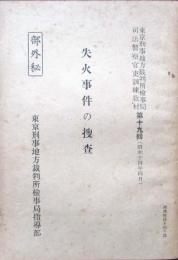 東京刑事地方裁判所檢事局
司法警察官吏訓練教材
第十九輯
(昭和十四年四月)
部外秘
失火事件の搜査
東京刑事地方裁判所檢事局指導部